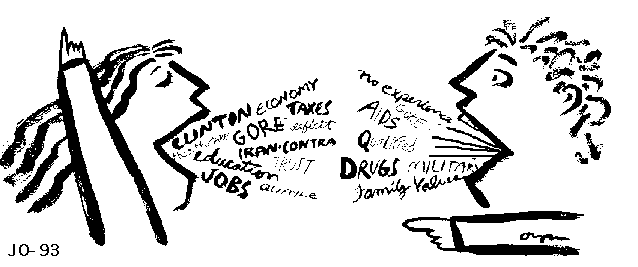 CLINTON ECONOMY
GORE TAXES
deficit
IRAN-CONTRA
education TRUST
JOBS
no experience
AIDS GORE
DRUGS MILITARY
family Values
JO-93